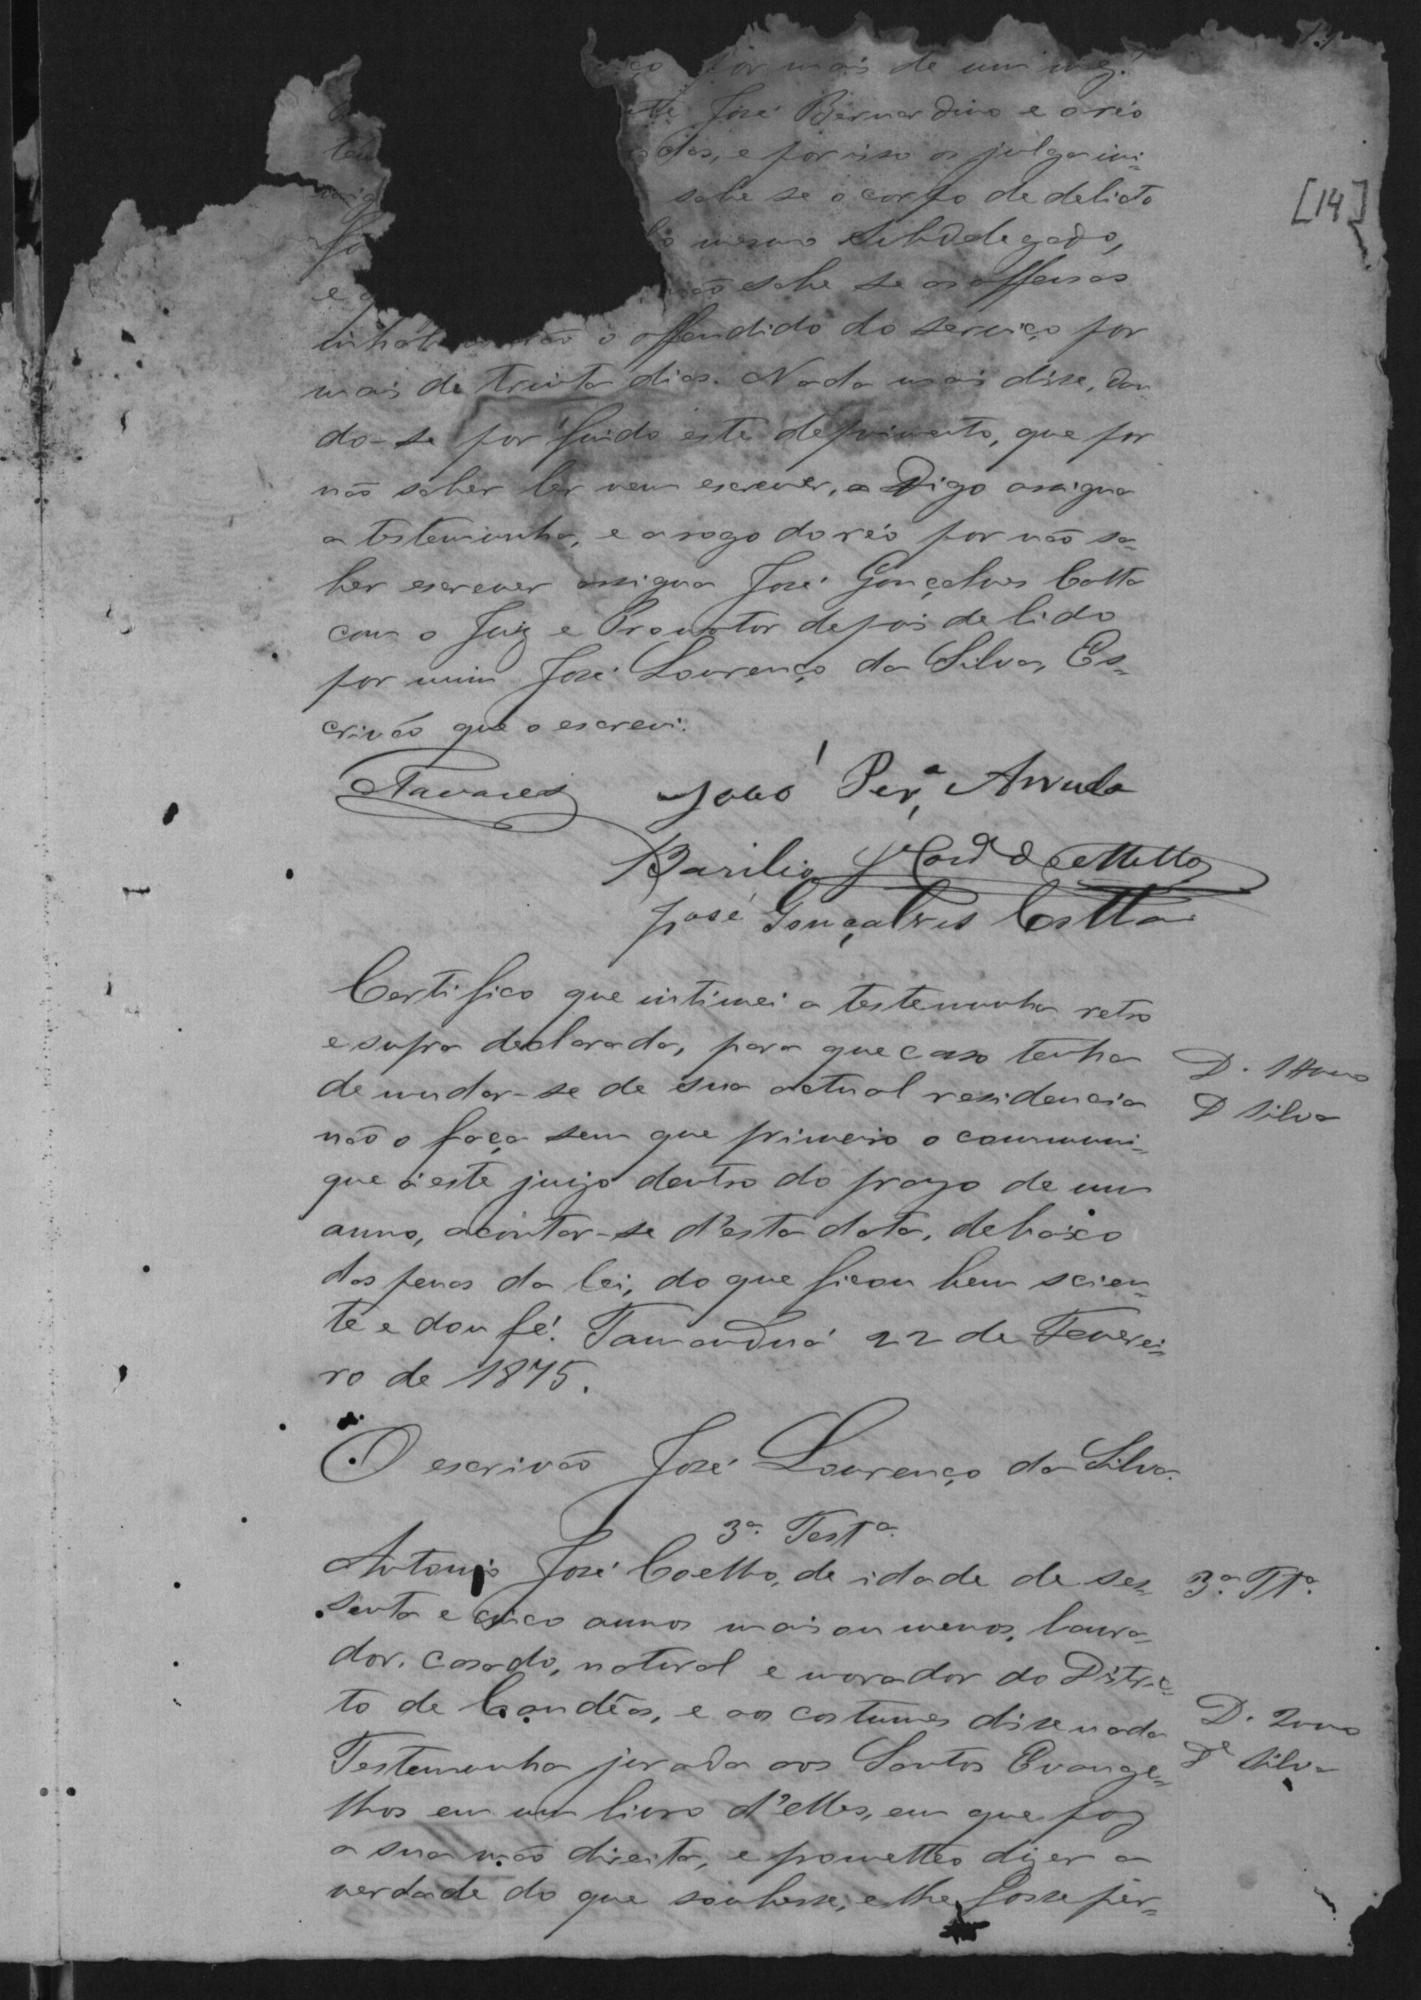 [14]
por mais de um mez.
José Bernardino e o réo
dos, e por isso os julga ini-
sabe se o corpo de delicto
mesmo Subdelegado,
e q não sabe se as offensas
o offendido do serviço por
mais de trinta dias. Nada mais disse, dan-
do-se por findo este depoimento, que por
não saber ler nem escrever, a Digo assigna
a testemunha, e a rogo do réo por não sa-
ber escrever assigna José Gonçalves Cotta
com o Juiz e Promotor depois de lido
por mim José Lourenço da Silva, Es-
crivão que o escrevi.
Tavares João Perª Arruda
Basilio de Mello
José Gonçalves Cotta
Certifico que intimei a testemunha retro
e supra declarada, para que caso tenha
de mudar-se de sua actual residencia
não o faça sem que primeiro o communi-
que á este juizo dentro do prazo de um
anno, acontar-se d'esta data, debaixo
das penas da lei, do que ficou bem scien-
te e dou fé. Tamanduá 22 de Feverei-
ro de 1875.
D. 1#000
D Silva
O escrivão José Lourenço da Silva.
3ª Testª
Antonio José Coelho, de idade de ses-
senta e cinco annos mais ou menos, lavra-
dor, casado, natural e morador do Distric-
to de Candêas, e aos costumes disse nada
Testemunha jurada aos Santos Evange-
lhos em um livro d'elles, em que poz
a sua mão direita, e prometteo dizer a
verdade do que soubesse, e lhe fosse per-
3ª Ttª
D. 2000
Dº Silva